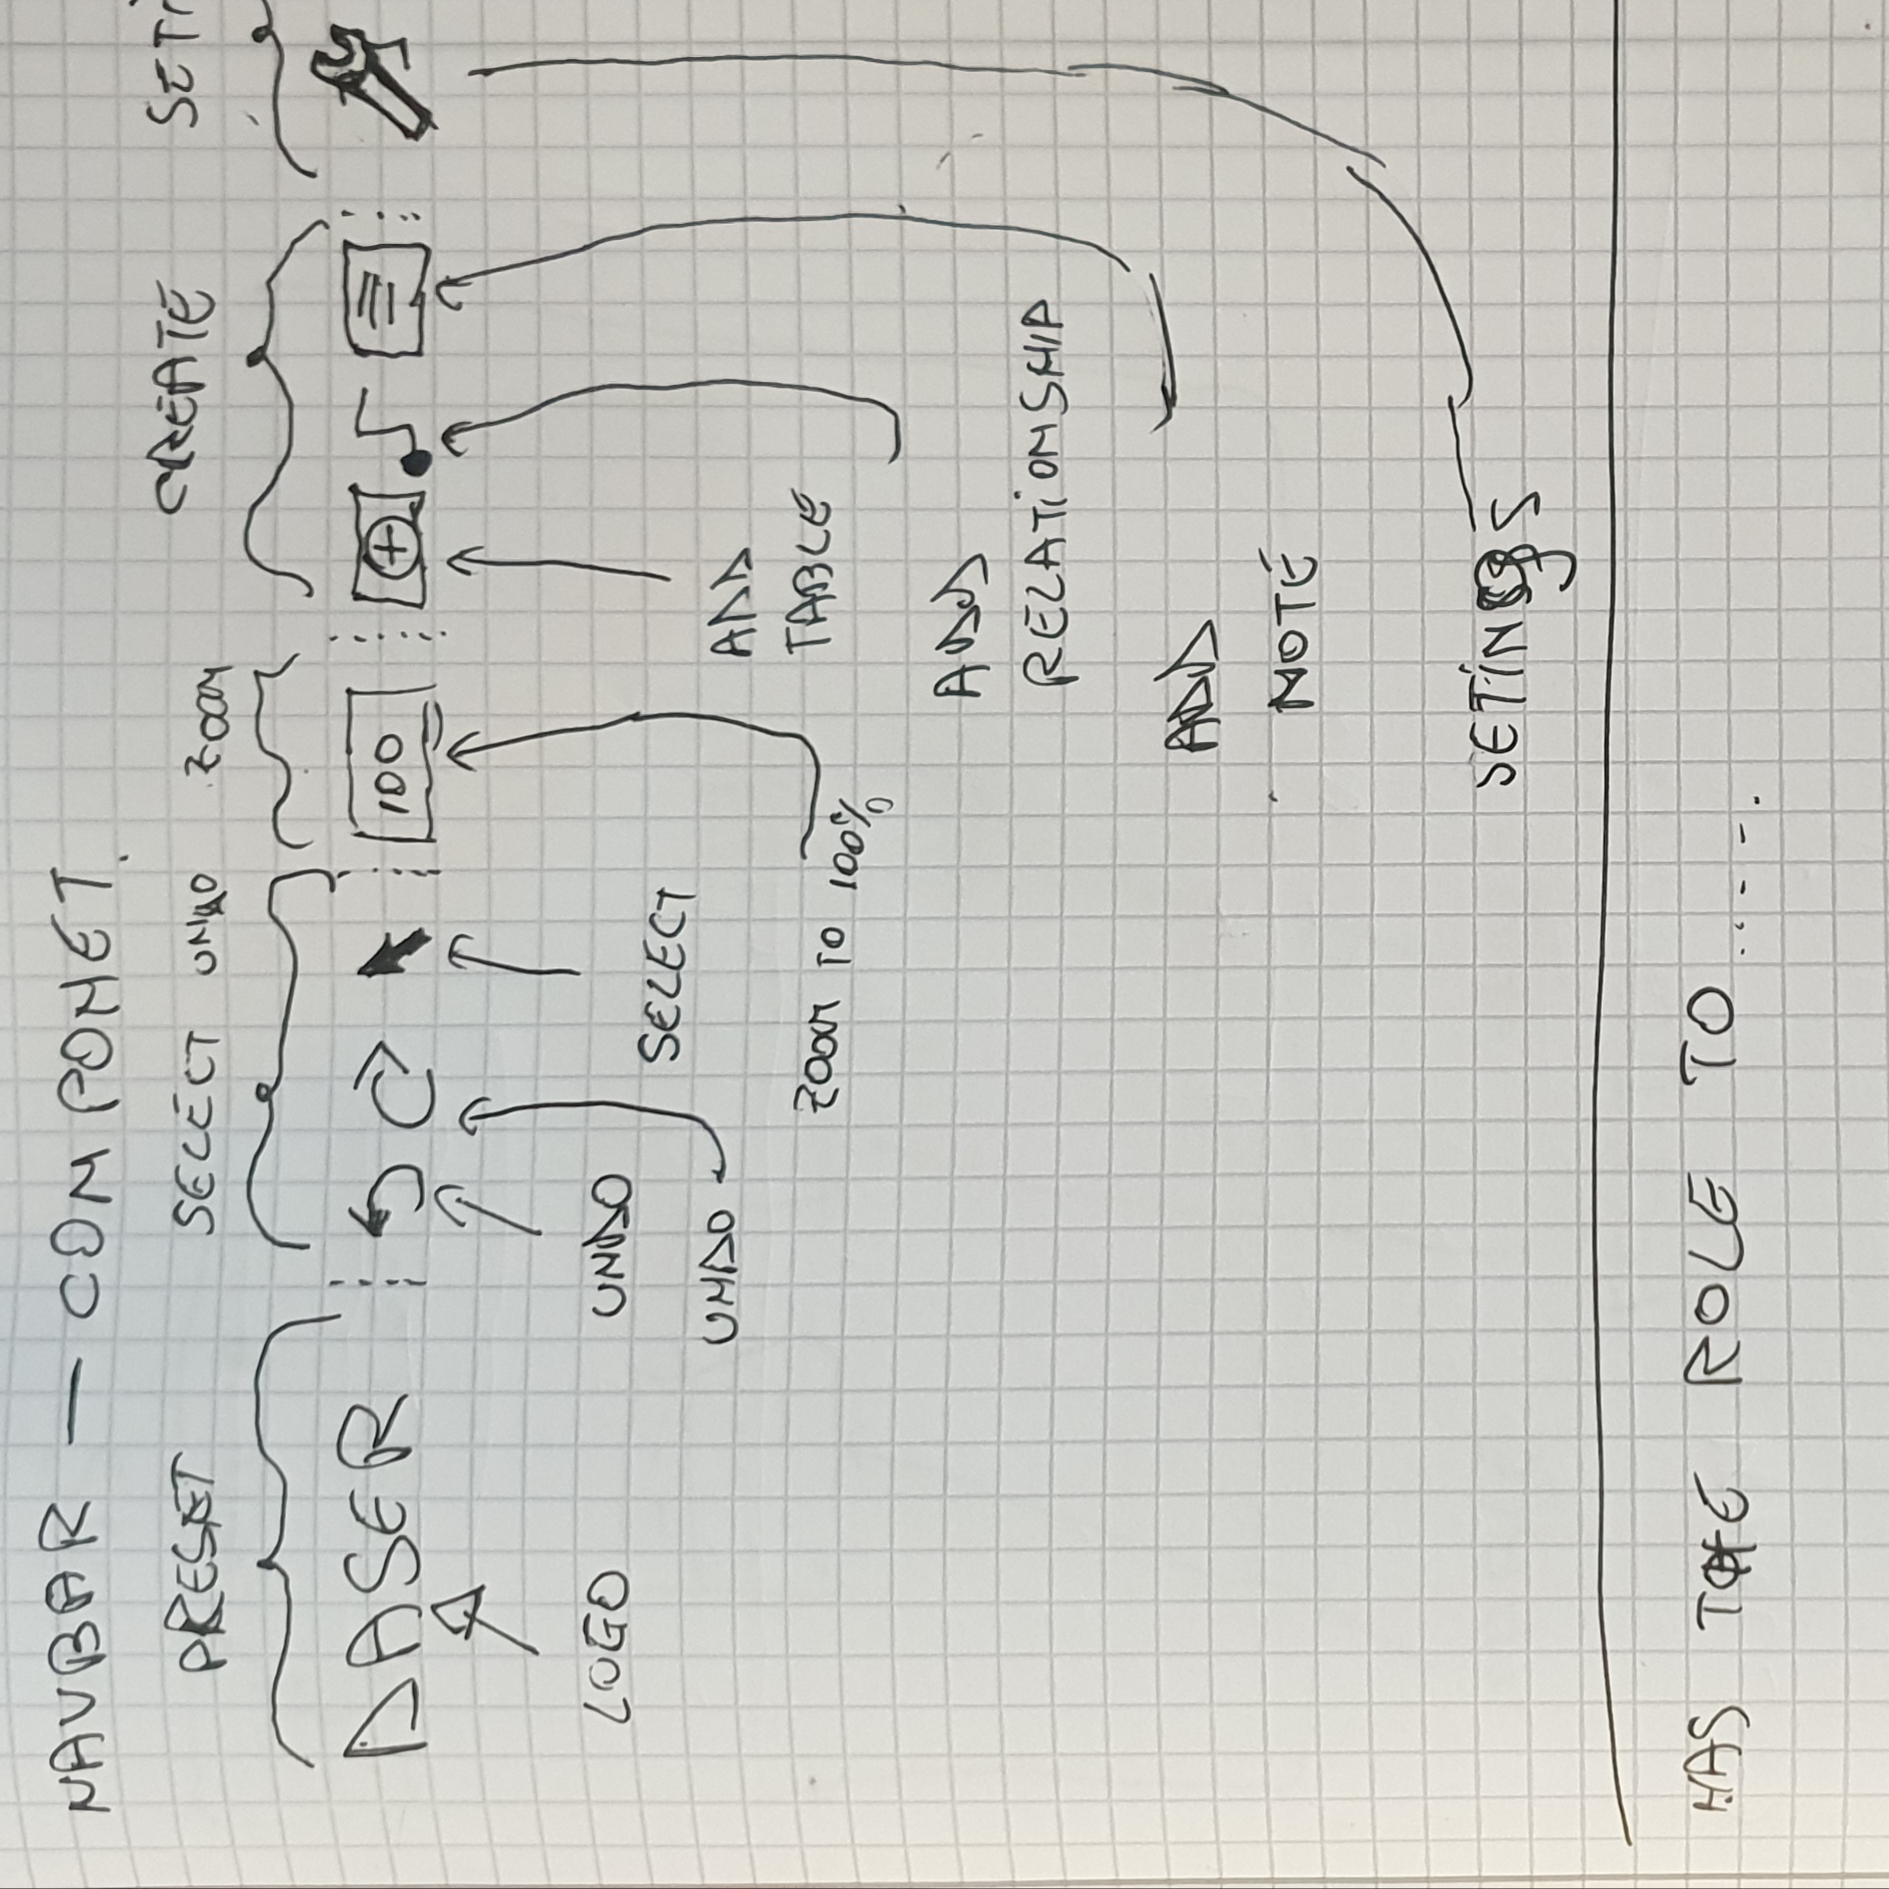 NAVBAR — COMPONET
PRESET SELECT UNDO ZOOM CREATE SETI
DASER 100
LOGO UNDO
UNDO
SELECT
ADD
TABLE
ZOOM TO 100%
ADD
RELATIONSHIP
ADD
NOTE
SETINGS
HAS THE ROLE TO .....